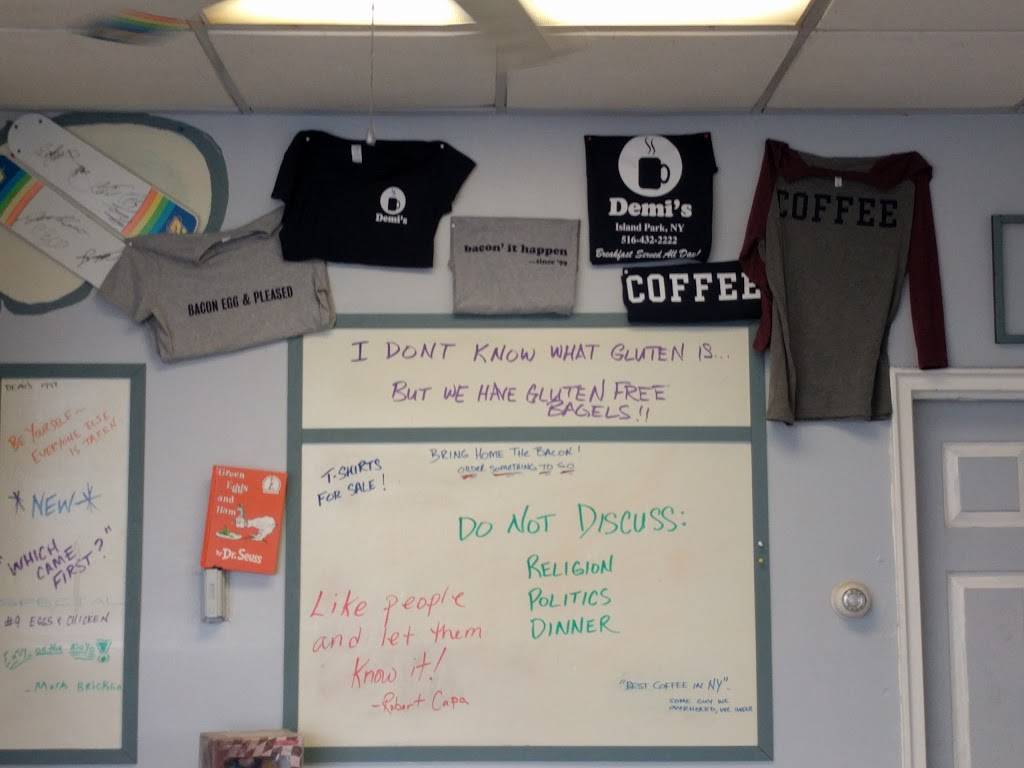 Demi's
Demi's
Island Park, NY
516-432-2222
Breakfast Served All Day!
COFFEE
COFFEE
bacon' it happen
...since '99
BACON EGG & PLEASED
I DONT KNOW WHAT GLUTEN IS...
BUT WE HAVE GLUTEN FREE
BAGELS!!
BRING HOME THE BACON!
ORDER SOMETHING TO GO
T-SHIRTS
FOR SALE!
DO NOT DISCUSS:
RELIGION
POLITICS
DINNER
Like people
and let them
know it!
-Robert Capa
"BEST COFFEE IN NY".
SOME GUY WE
OVERHEARD,
Green
Eggs
and
Ham
by Dr. Seuss
BE YOURSELF~
EVERYONE ELSE
IS TAKEN
*NEW*
"WHICH
CAME
FIRST?"
SPECIAL
#9 EGGS & CHICKEN